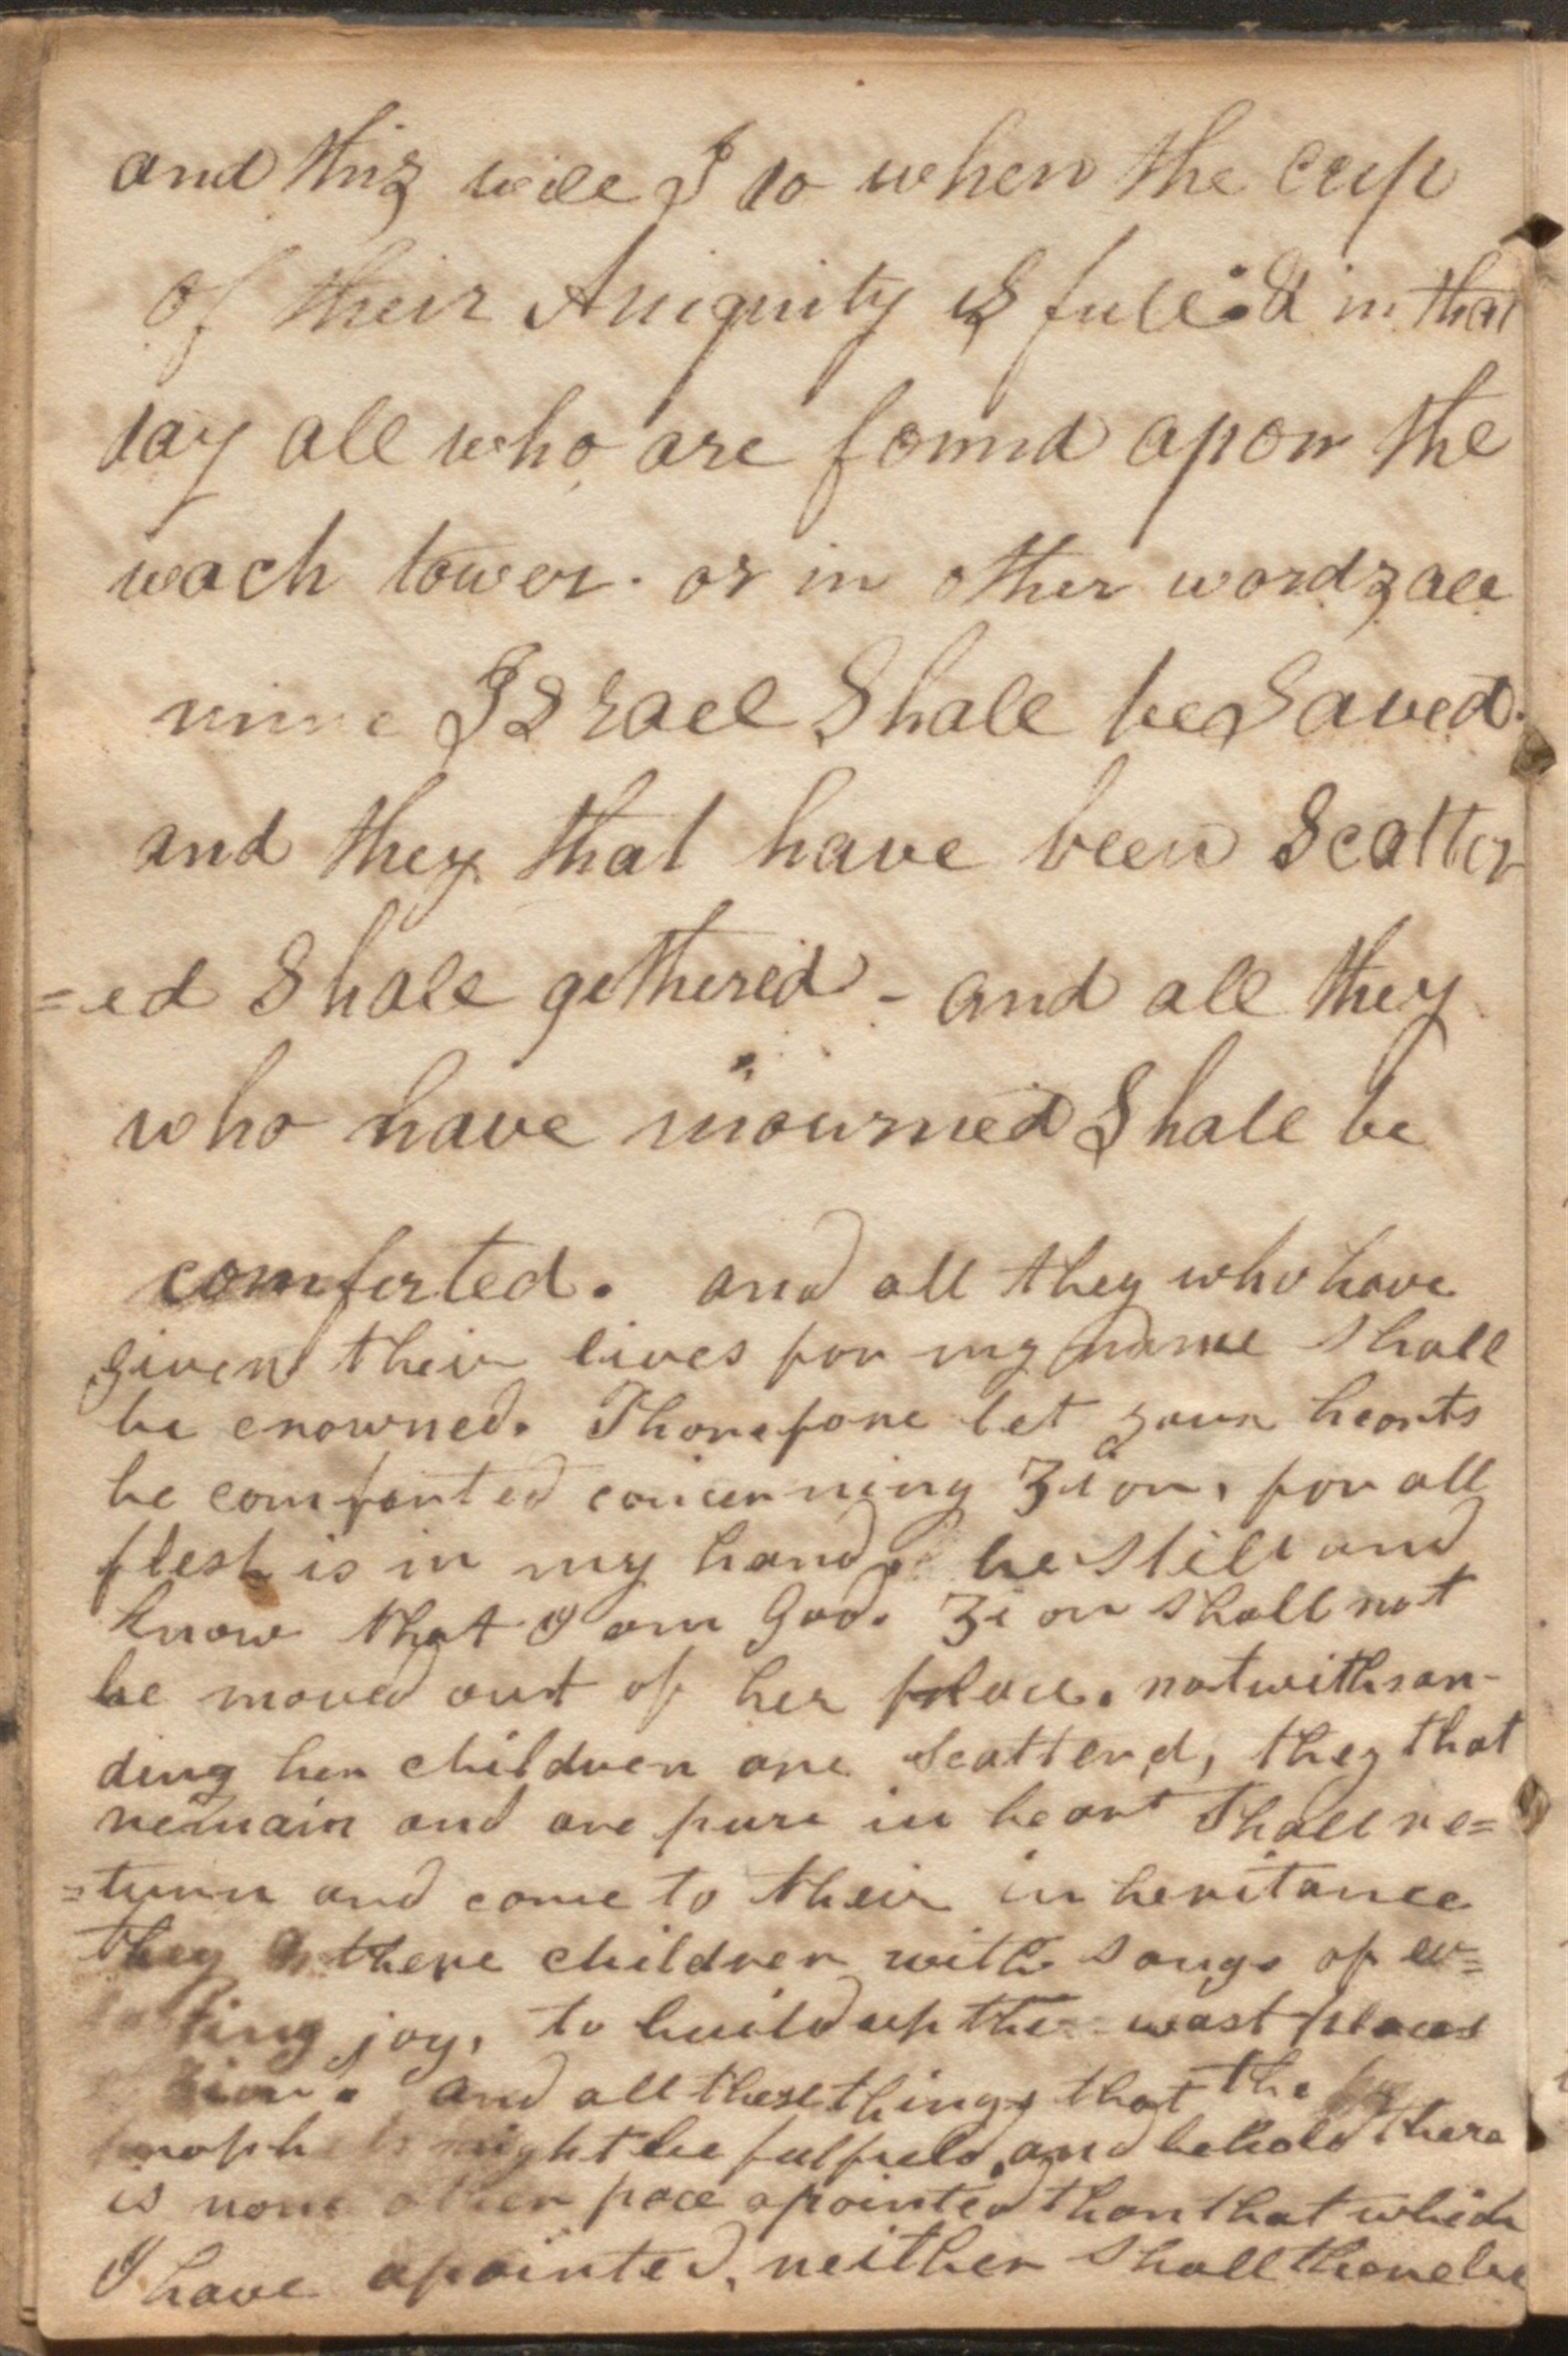 and this will I do when the cup
of their Aniquity is full & in that
day all who are found apon the
wach tower. or in other words all
mine Israel Shall be Saved.
and they that have been Scatter
=ed Shall gethered - and all they
who have mourned Shall be
comforted. and all they who have
given their lives for my name shall
be crowned. Therefore let your hearts
be comforted concerning Zion, for all
flesh is in my hand, be still and
know that I am God. Zion shall not
be moved out of her place. notwithsan-
ding her children are scatterd, they that
remain and are pure in heart Shall re=
=turn and come to their inheritance
they & there children with songs of ev=
lasting joy, to build up the wast places
Zion. and all these things that the
prophets might be fulfield, and behold there
is none other pace apointed than that which
I have apointed, neither shall there be